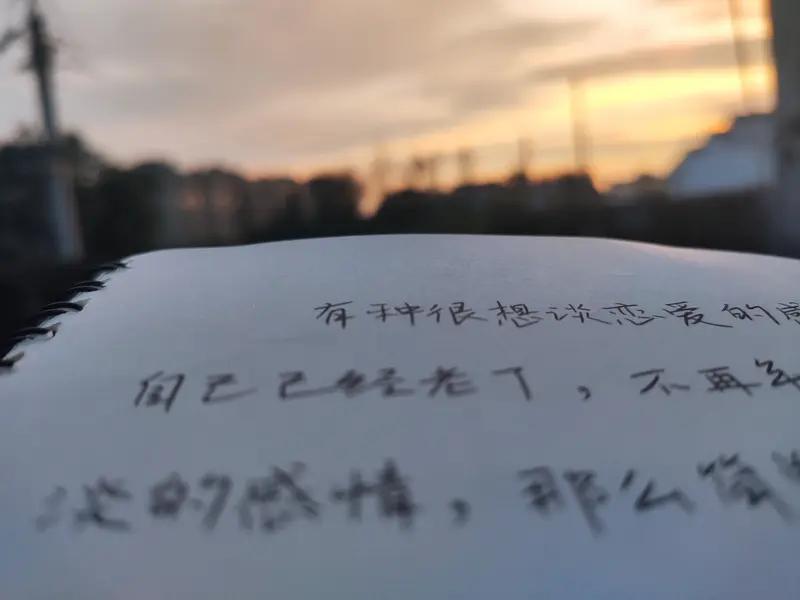 有种很想谈恋爱的感
自己已经老了，不再年
淡的感情，那么简单